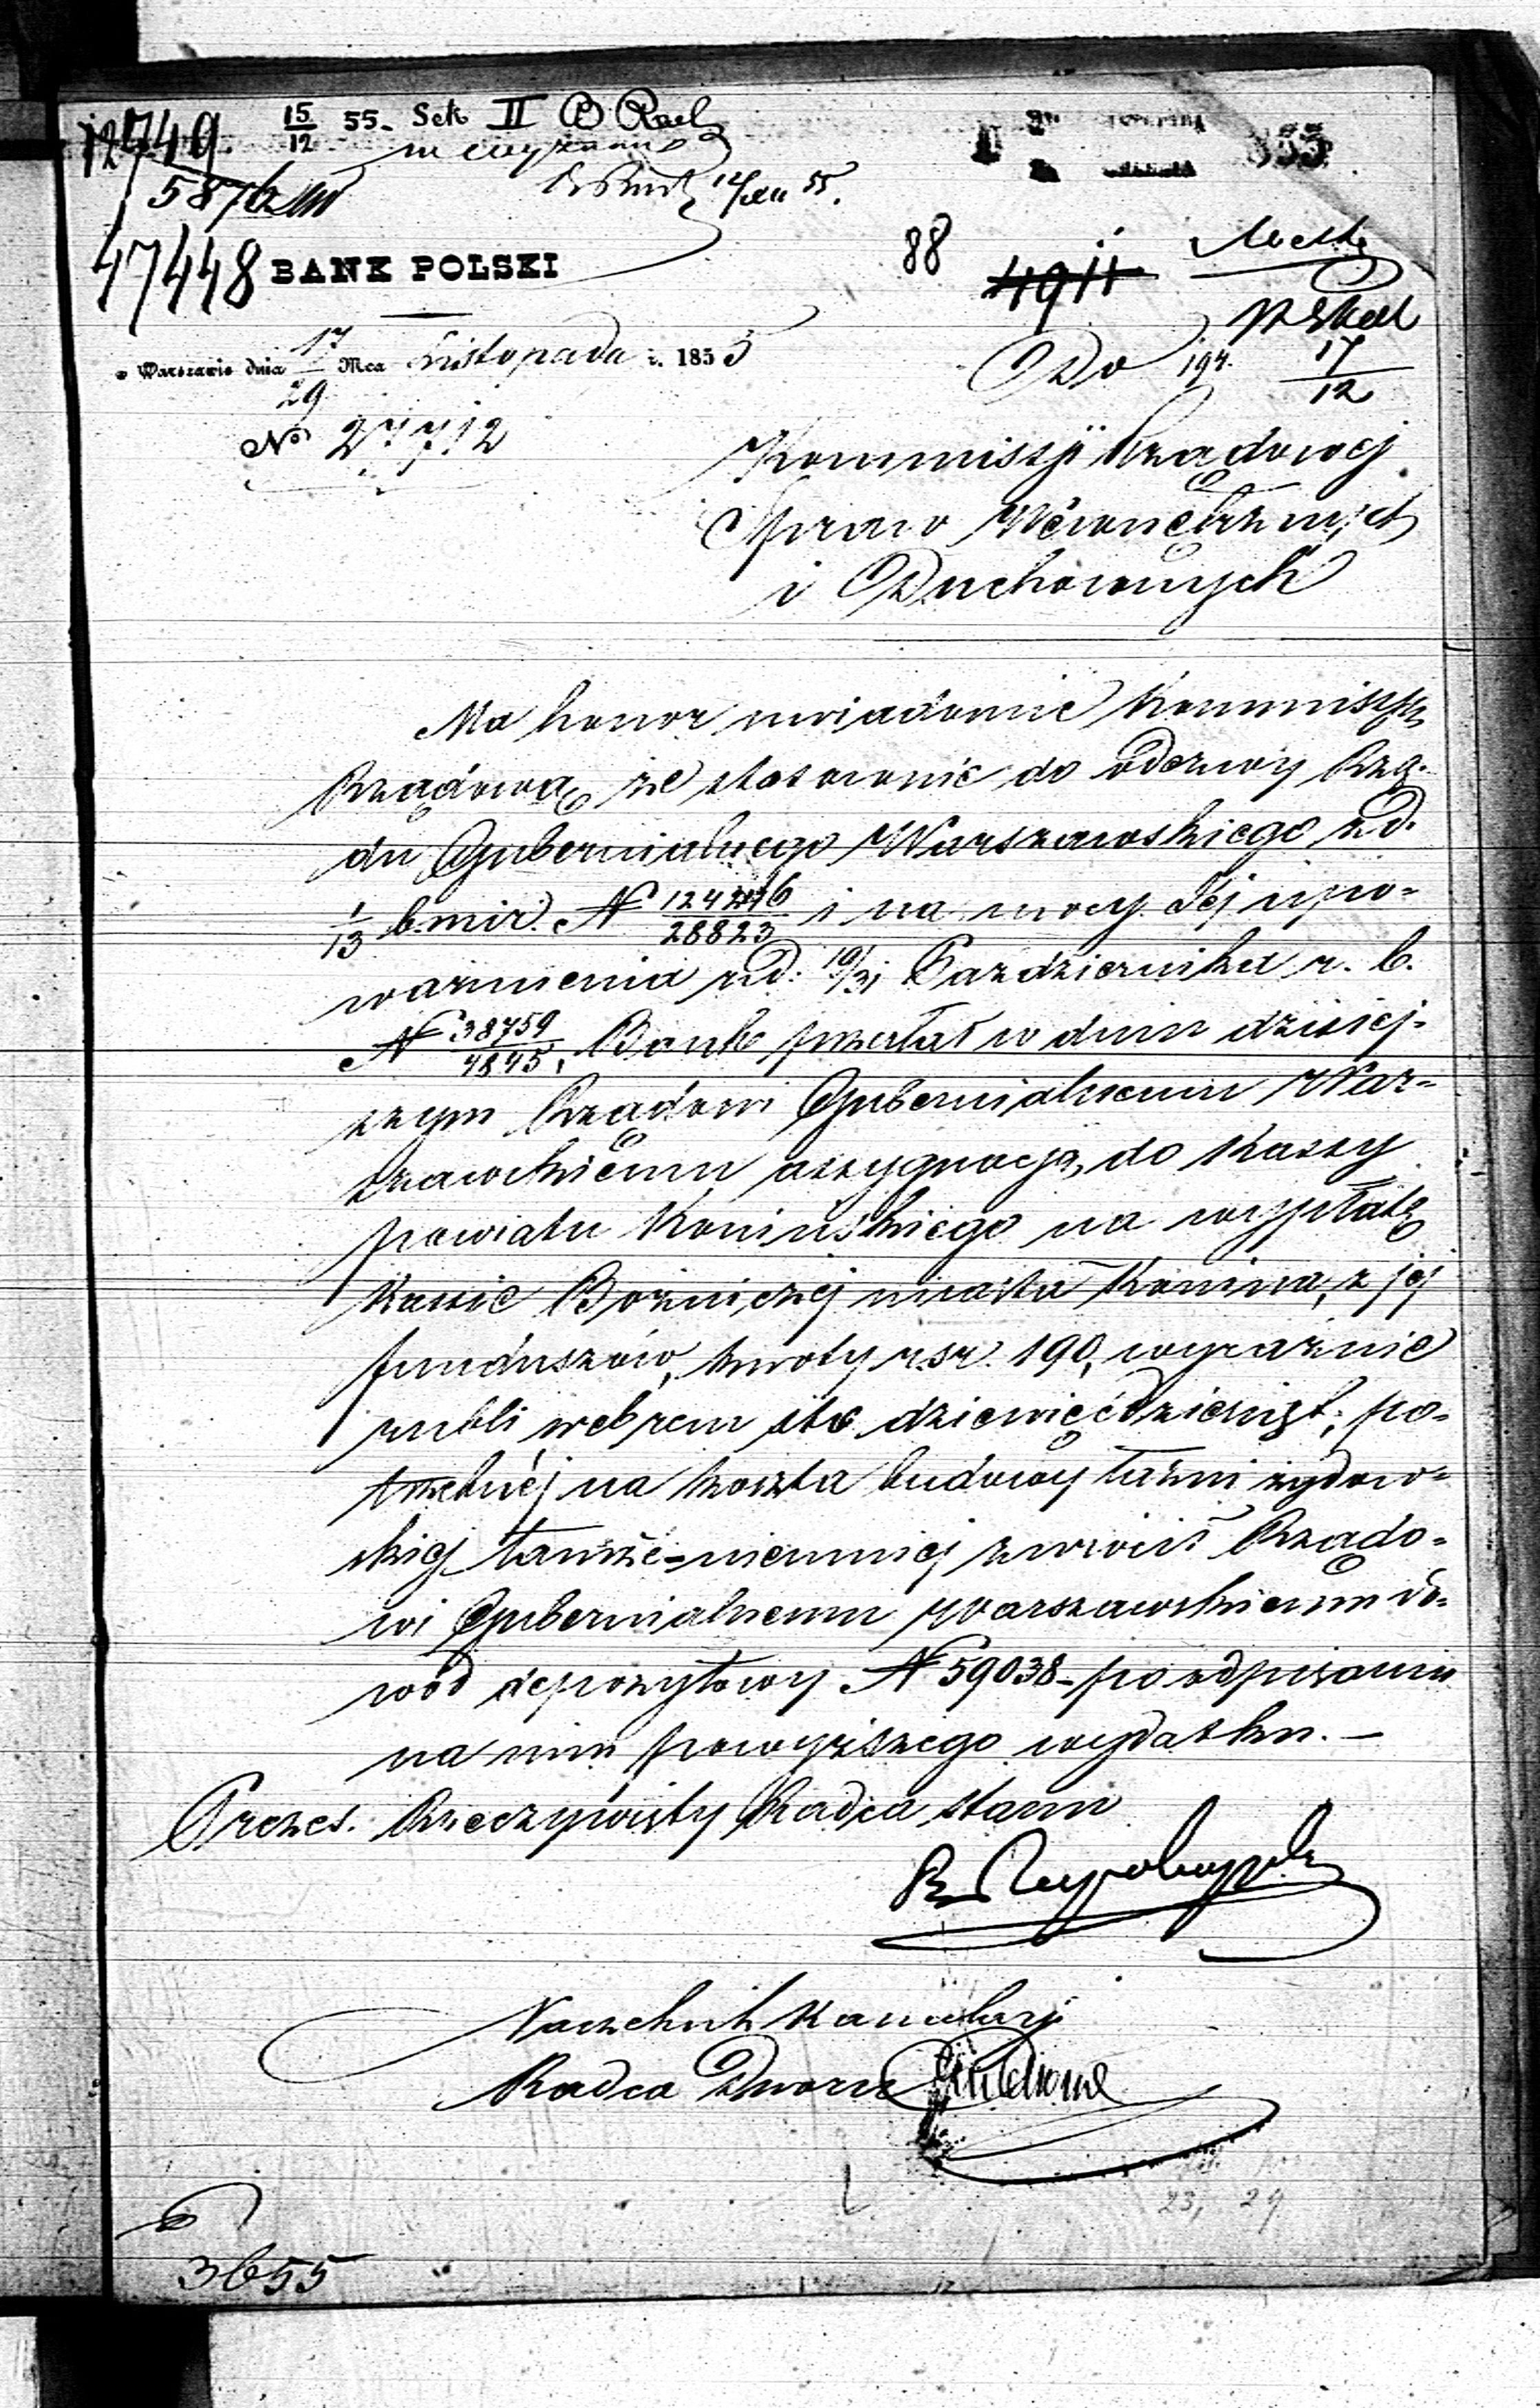 12749
5876
15/12 55. Sek II B Rach
12/XII 55.
47448 BANK POLSKI
88
4911
w Warszawie dnia 17/29 Mca Listopada r. 1855
Do 194. 17/12
No 27712
Kommissyi Rządowej
Spraw Wewnętrznych
i Duchownych
Ma honor uwiadomić Kommissyą
Rządową, że stosownie do odezwy Rzą-
du Gubernialnego Warszawskiego z d.
1/13 b. m i r. N 124246/28823 i na mocy Jej upo-
ważnienia z d. 19/31 Października r. b.
N 38759/4845, Bank przesłał w dniu dzisiej-
szym Rządowi Gubernialnemu War-
szawskiemu assygnacją do Kassy
powiatu Konińskiego na wypłatę
Kassie Bożniczej miasta Konina, z jej
funduszów, kwoty rsr. 190, wyraźnie
rubli srebrem sto dziewięćdziesiąt, po-
trzebnéj na koszta budowy łaźni żydow-
skiej tamże - niemniej zwrócił Rządo-
wi Gubernialnemu Warszawskiemu do-
wód depozytowy N 59038 - po odpisaniu
na nim powyższego wydatku. -
Prezes. Rzeczywisty Radca Stanu
Naczelnik Kancelaryi
Radca Dworu
23, 29
3655